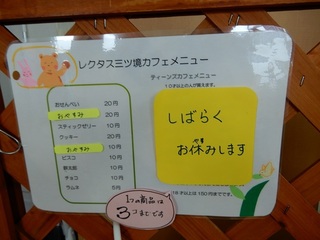 レクタス三ツ境カフェメニュー
ティーンズカフェメニュー
10才以上の人が買えます。
おせんべい 20円
おやすみ 20円
スティックゼリー 10円
クッキー 20円
おやすみ 10円
ビスコ 10円
都太郎 10円
チョコ 10円
ラムネ 5円
しばらく
お休みします
18才以上は 150円までです。
1つの商品は
3つまでです